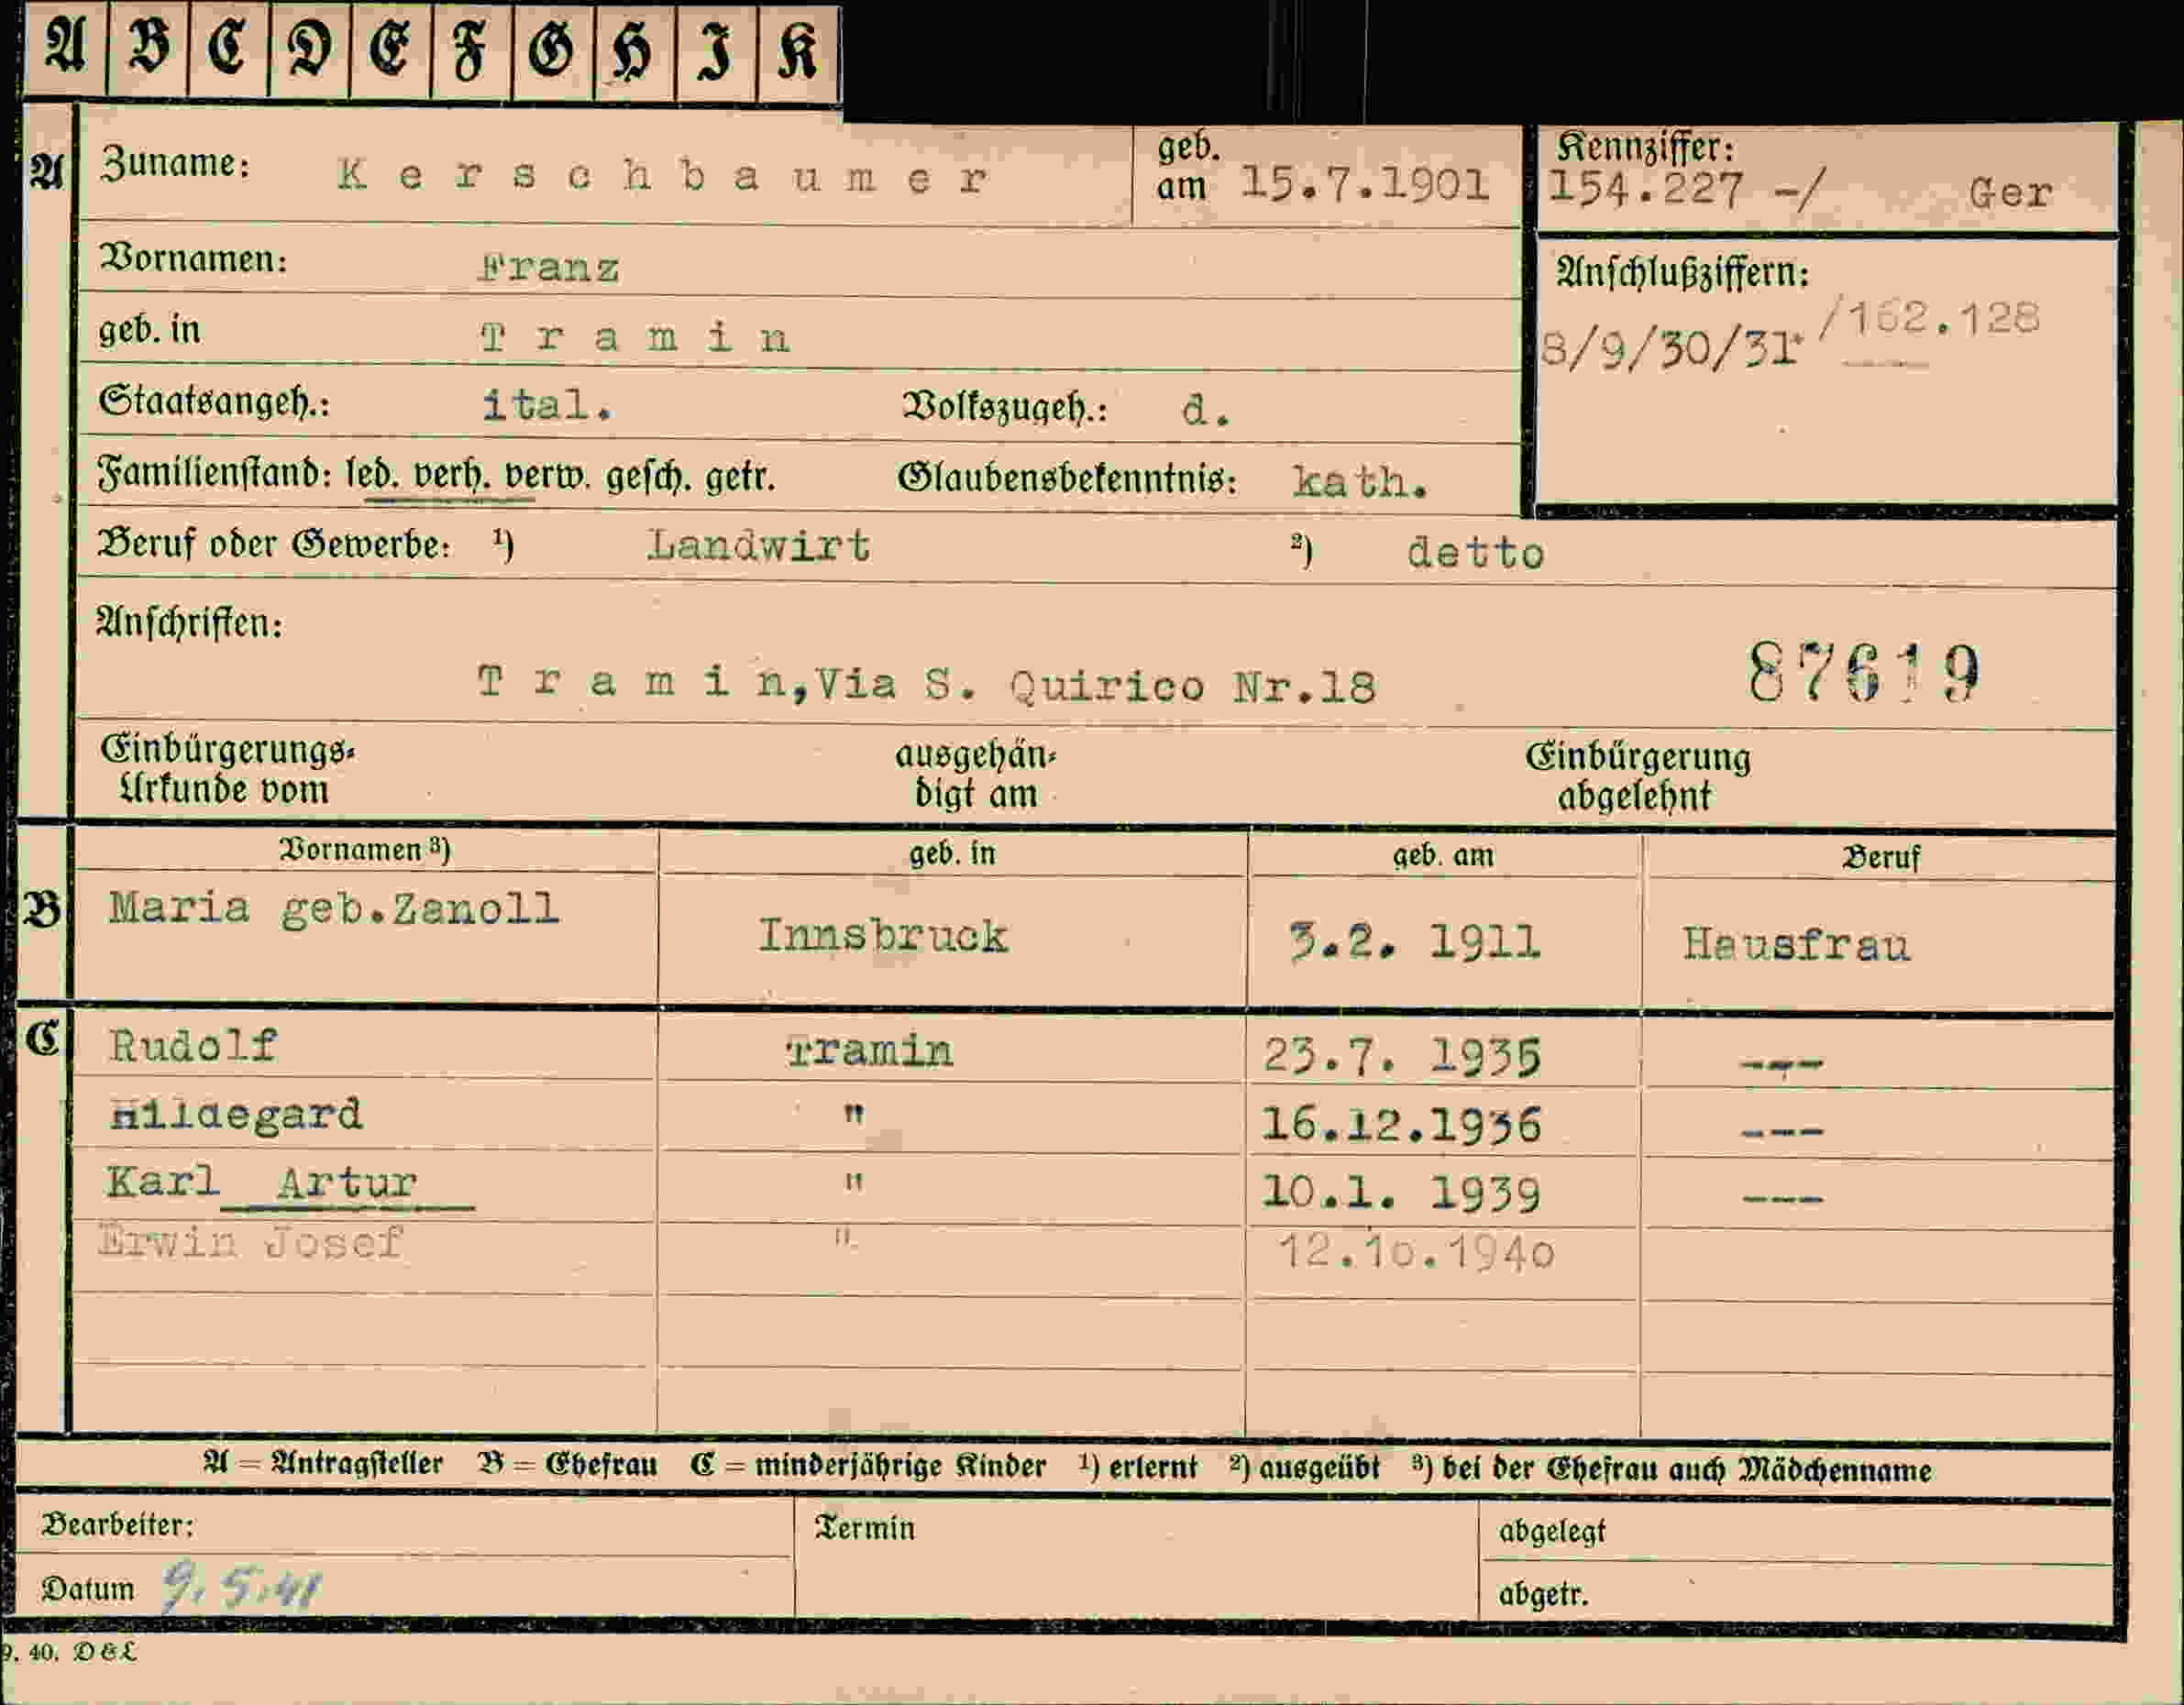 A B C D E F G H I K
A Zuname: Kerschbaumer geb. am 15.7.1901 Kennziffer: 154.227 -/ Ger
Vornamen: Franz
Anschlußziffern:
geb. in Tramin
8/9/30/31 /162.128
Staatsangeh.: ital. Volkszugeh.: d.
Familienstand: led. verh. verw. gesch. getr. Glaubensbekenntnis: kath.
Beruf oder Gewerbe: 1) Landwirt 2) detto
Anschriften:
Tramin, Via S. Quirico Nr.18 87619
Einbürgerungs- ausgehän- Einbürgerung
Urkunde vom digt am abgelehnt
Vornamen 3) geb. in geb. am Beruf
B Maria geb.Zanoll Innsbruck 3.2. 1911 Hausfrau
C Rudolf Tramin 23.7. 1935 ---
Hildegard " 16.12.1936 ---
Karl Artur " 10.1. 1939 ---
Erwin Josef " 12.10.1940
A = Antragsteller B = Ehefrau C = minderjährige Kinder 1) erlernt 2) ausgeübt 3) bei der Ehefrau auch Mädchenname
Bearbeiter: Termin abgelegt
Datum 9.5.41 abgetr.
9. 40. D & L